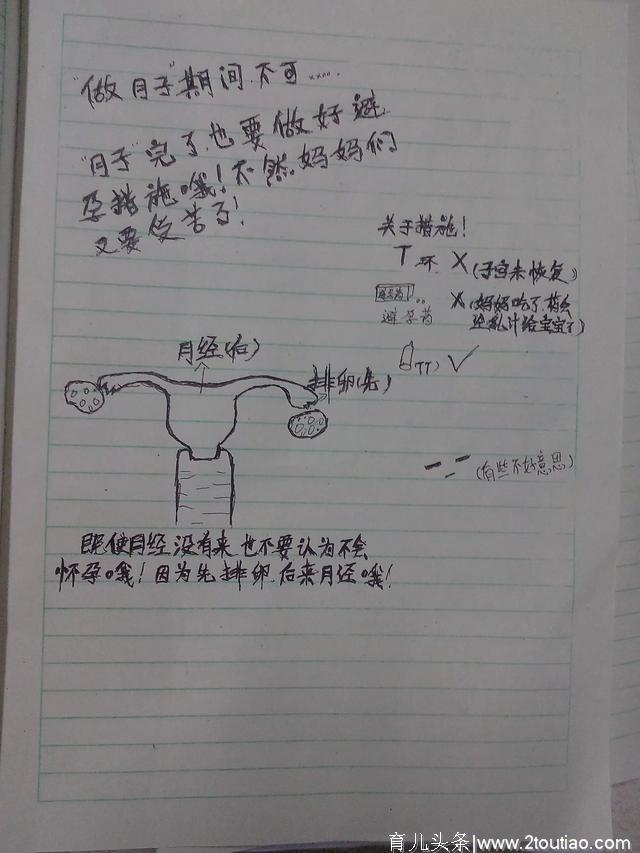 "做月子"期间不可……
"月子"完了也要做好避
孕措施哦!不然妈妈们
又要受苦了!
关于措施!
T环 X (子宫未恢复)
避孕药 X (妈妈吃了药会
经乳汁给宝宝了)
(TT) ✓
月经(后)
排卵(先)
(有些不好意思)
即使月经没有来也不要认为不会
怀孕哦!因为先排卵.后来月经哦!
育儿头条|www.2toutiao.com